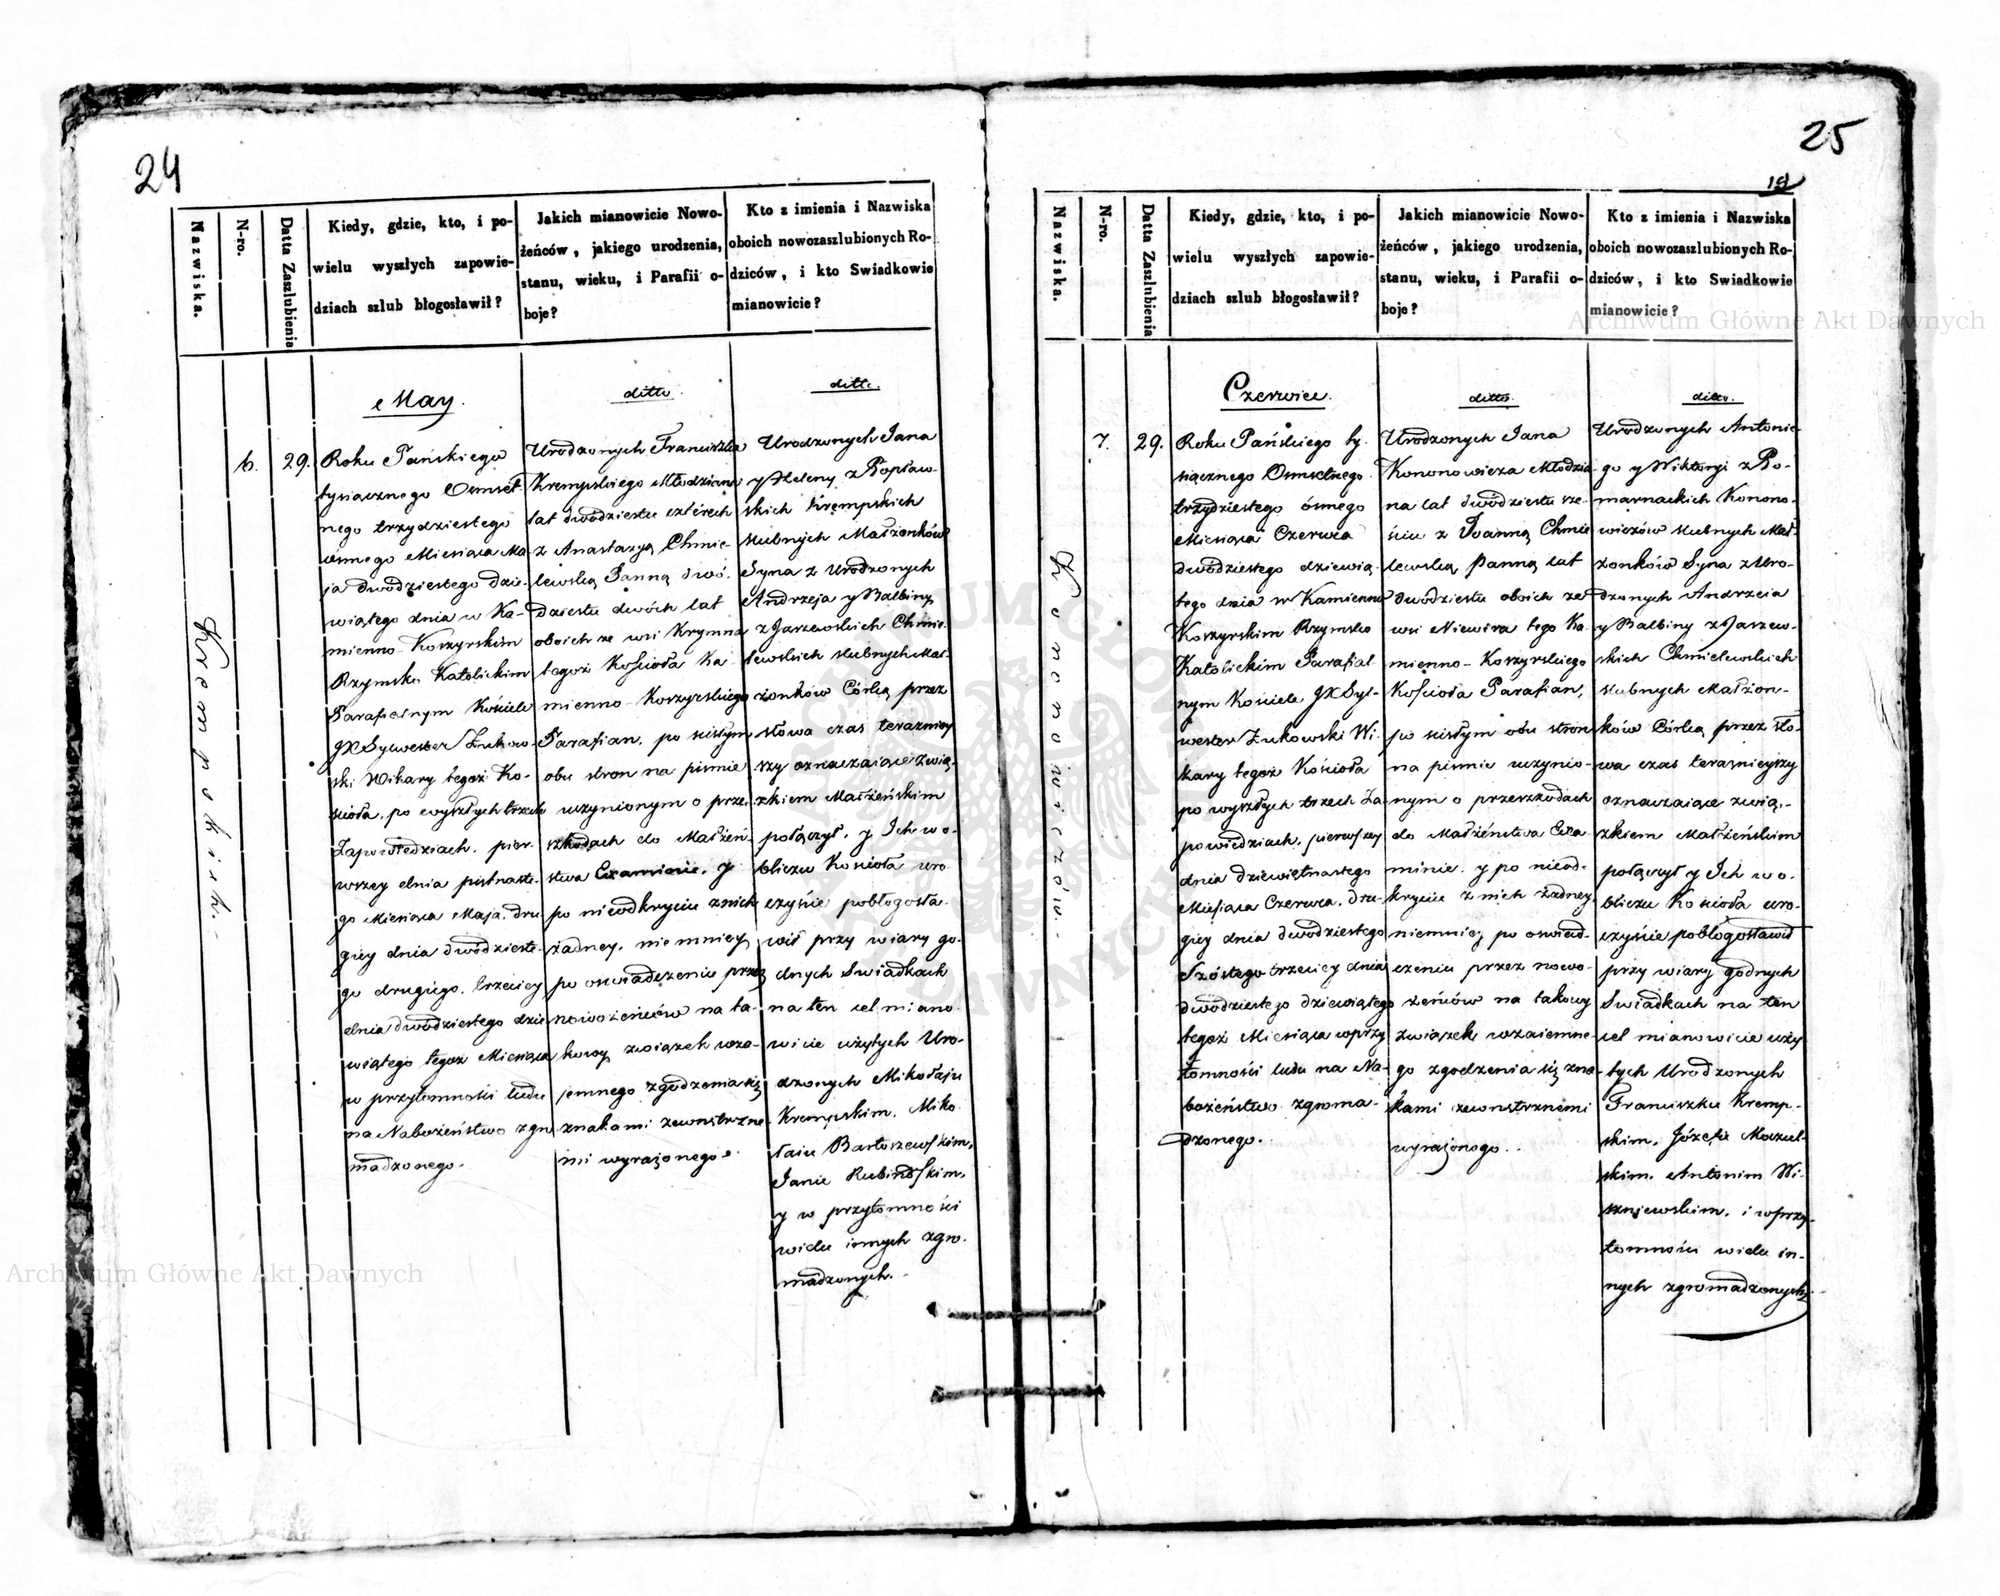 24
Nazwiska.
N-ro.
Datta Zaszlubienia
Kiedy, gdzie, kto, i po-
wielu wyszłych zapowie-
dziach szlub błogosławił?
Jakich mianowicie Nowo-
żeńców, jakiego urodzenia,
stanu, wieku, i Parafii o-
boje?
Kto z imienia i Nazwiska
oboich nowozaszlubionych Ro-
dziców, i kto Swiadkowie
mianowicie?
Krempskich.
6.
29.
May.
Roku Pańskiego
tysiącznego Osmset-
nego trzydziestego
ósmego Miesiąca Ma-
ja dwódziestego dzie-
wiątego dnia w Ka-
mienno-Koszyrskim
Rzymsko Katolickim
Parafialnym Kościele
JX Sylwester Żukow-
ski Wikary tegoż Ko-
ścioła, po wyszłych trzech
Zapowiedziach, pier-
wszey dnia pietnaste-
go Miesiąca Maja, dru-
giey dnia dwódzieste-
go drugiego, trzeciey
dnia dwódziestego dzie-
wiątego tegoż Miesiąca
w przytomności ludu
na Nabożeństwo zgro
madzonego.
ditto.
Urodzonych Franciszka
Krempskiego Młodziana
lat dwódziestu czterech
z Anastazyą Chmie-
lewską Panną dwó-
dziestu dwóch lat
oboich ze wsi Krymna
tegoż Kościoła Ka-
mienno-Koszyrskiego
Parafian, po scisłym
obu stron na piśmie
uczynionym o prze-
szkodach do Małżeń-
stwa Examinie, y
po nieodkryciu z nich
żadney, niemniey
po oswiadczeniu przez
nowożeńców na ta-
kowy związek wza-
jemnego zgodzenia się
znakami zewnętrzne-
mi wyrażonego.
ditto.
Urodzonych Jana
y Heleny z Popław-
skich Krempskich
slubnych Małżonków
Syna z Urodzonych
Andrzeja y Balbiny
z Jarzewskich Chmie-
lewskich slubnych Mał-
żonków Córką przez
słowa czas teraźniey
szy oznaczaiące zwią-
zkiem Małżeńskim
połączył, y Ich w o-
bliczu Kościoła uro-
czyście pobłogosła-
wił przy wiary go-
dnych Swiadkach
na ten cel miano-
wicie użytych Uro-
dzonych Mikołaju
Krempskim, Miko-
łaiu Bartoszewskim,
Janie Rubinskim,
y w przytomności
wielu innych zgro-
madzonych.
25
Nazwiska.
N-ro.
Datta Zaszlubienia
Kiedy, gdzie, kto, i po-
wielu wyszłych zapowie-
dziach szlub błogosławił?
Jakich mianowicie Nowo-
żeńców, jakiego urodzenia,
stanu, wieku, i Parafii o-
boje?
Kto z imienia i Nazwiska
oboich nowozaszlubionych Ro-
dziców, i kto Swiadkowie
mianowicie?
Kononowiczów.
7.
29.
Czerwiec.
Roku Pańskiego ty-
siącznego Osmsetnego
trzydziestego ósmego
Miesiąca Czerwca
dwódziestego dziewią-
tego dnia w Kamienno
Koszyrskim Rzymsko
Katolickim Parafial
nym Kościele JX Syl-
wester Żukowski Wi-
kary tegoż Kościoła
po wyszłych trzech Za-
powiedziach, pierwszey
dnia dziewiętnastego
Miesiąca Czerwca, dru-
giey dnia dwódziestego
Szóstego trzeciey dnia
dwódziestego dziewiątego
tegoż Miesiąca w przy
tomności ludu na Na-
bożeństwo zgroma-
dzonego.
ditto.
Urodzonych Jana
Kononowicza Młodzia-
na lat dwódziestu sze-
ściu z Joanną Chmie
lewską Panną lat
dwódziestu oboich ze
wsi Niewira tego Ka-
mienno-Koszyrskiego
Kościoła Parafian,
po scisłym obu stron
na piśmie uczynio-
nym o przeszkodach
do Małżeństwa Exa-
minie, y po nieod-
kryciu z nich żadney
niemniey po oswiad-
czeniu przez nowo-
żeńców na takowy
związek wzaiemne-
go zgodzenia się zna-
kami zewnętrznemi
wyrażonego.
ditto.
Urodzonych Antonie-
go y Wiktoryi z Ro-
marnackich Konono-
wiczów slubnych Mał-
żonków Syna z Uro-
dzonych Andrzeia
y Balbiny z Jarzew-
skich Chmielewskich
slubnych Małżon-
ków Córką przez sło-
wa czas teraźnieyszy
oznaczaiące zwią-
zkiem Małżeńskim
połączył y Ich w o-
bliczu Kościoła uro-
czyście pobłogosławił
przy wiary godnych
Swiadkach na ten
cel mianowicie uży
tych Urodzonych
Franciszku Kremp-
skim, Józefie
skim, Antonim Wi-
szniewskim, i w przy-
tomności wielu in-
nych zgromadzonych.
Archiwum Główne Akt Dawnych
Archiwum Główne Akt Dawnych